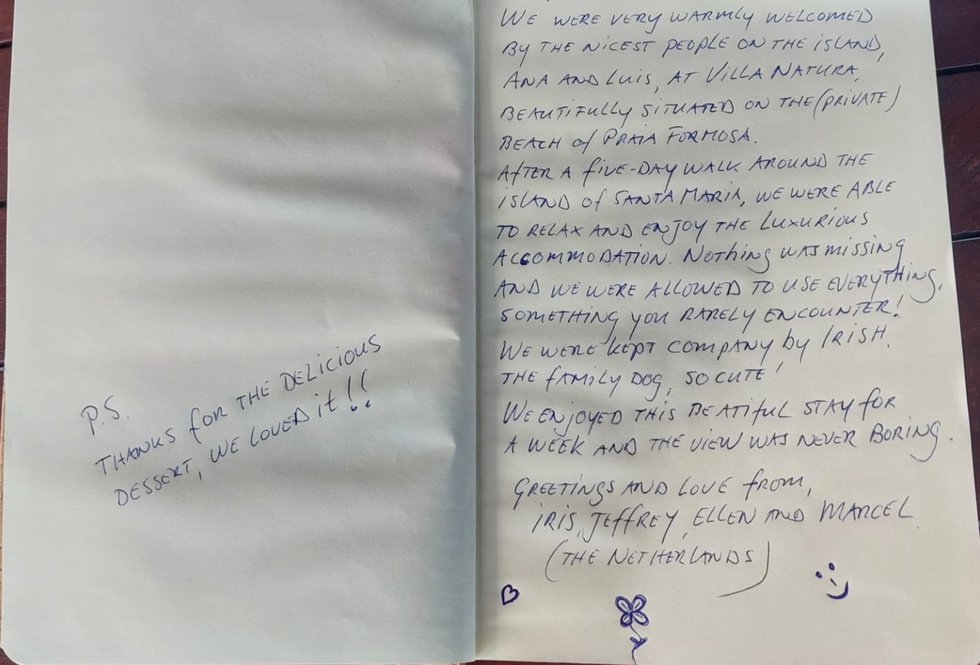 P.S.
THANKS for THE DELICIOUS
DESSERT, WE LOVED it!!
WE WERE VERY WARMLY WELCOMED
BY THE NICEST PEOPLE ON THE ISLAND,
ANA AND LUIS, AT VILLA NATURA,
BEAUTIFULLY SITUATED ON THE (PRIVATE)
BEACH of PRAIA FORMOSA.
AFTER A fIVE-DAY WALK AROUND THE
ISLAND of SANTA MARIA, WE WERE ABLE
TO RELAX AND ENJOY THE LUXURIOUS
ACCOMMODATION. NOTHING WAS MISSING
AND WE WERE ALLOWED TO USE EVERYTHING,
SOMETHING YOU RARELY ENCOUNTER!
WE WERE KEPT COMPANY by IRISH,
THE fAMILY DOG, SO CUTE!
WE ENJOYED THIS BEATIFUL STAY FOR
A WEEK AND THE VIEW WAS NEVER BORING.
GREETINGS AND LOVE from,
IRIS, JEFFREY, ELLEN AND MARCEL
(THE NETHERLANDS)